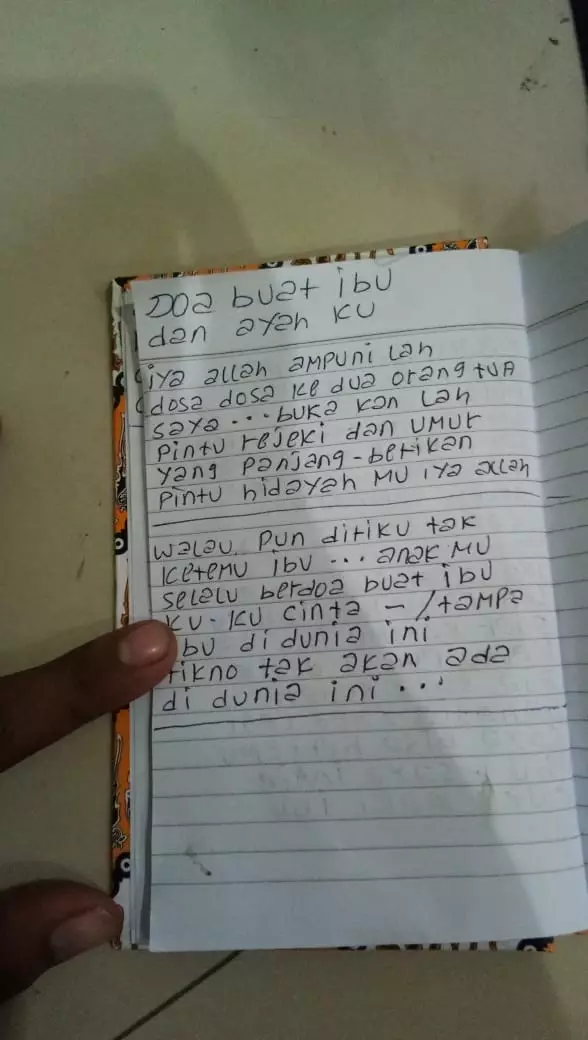 Doa buat ibu
dan ayah ku
iya allah ampuni lah
dosa dosa ke dua orang tua
saya ... buka kan lah
pintu rejeki dan umur
yang panjang - berikan
pintu hidayah mu iya allah
walau pun diriku tak
ketemu ibu ... anak mu
selalu berdoa buat ibu
ku - ku cinta - / tampa
ibu di dunia ini
rikno tak akan ada
di dunia ini ...